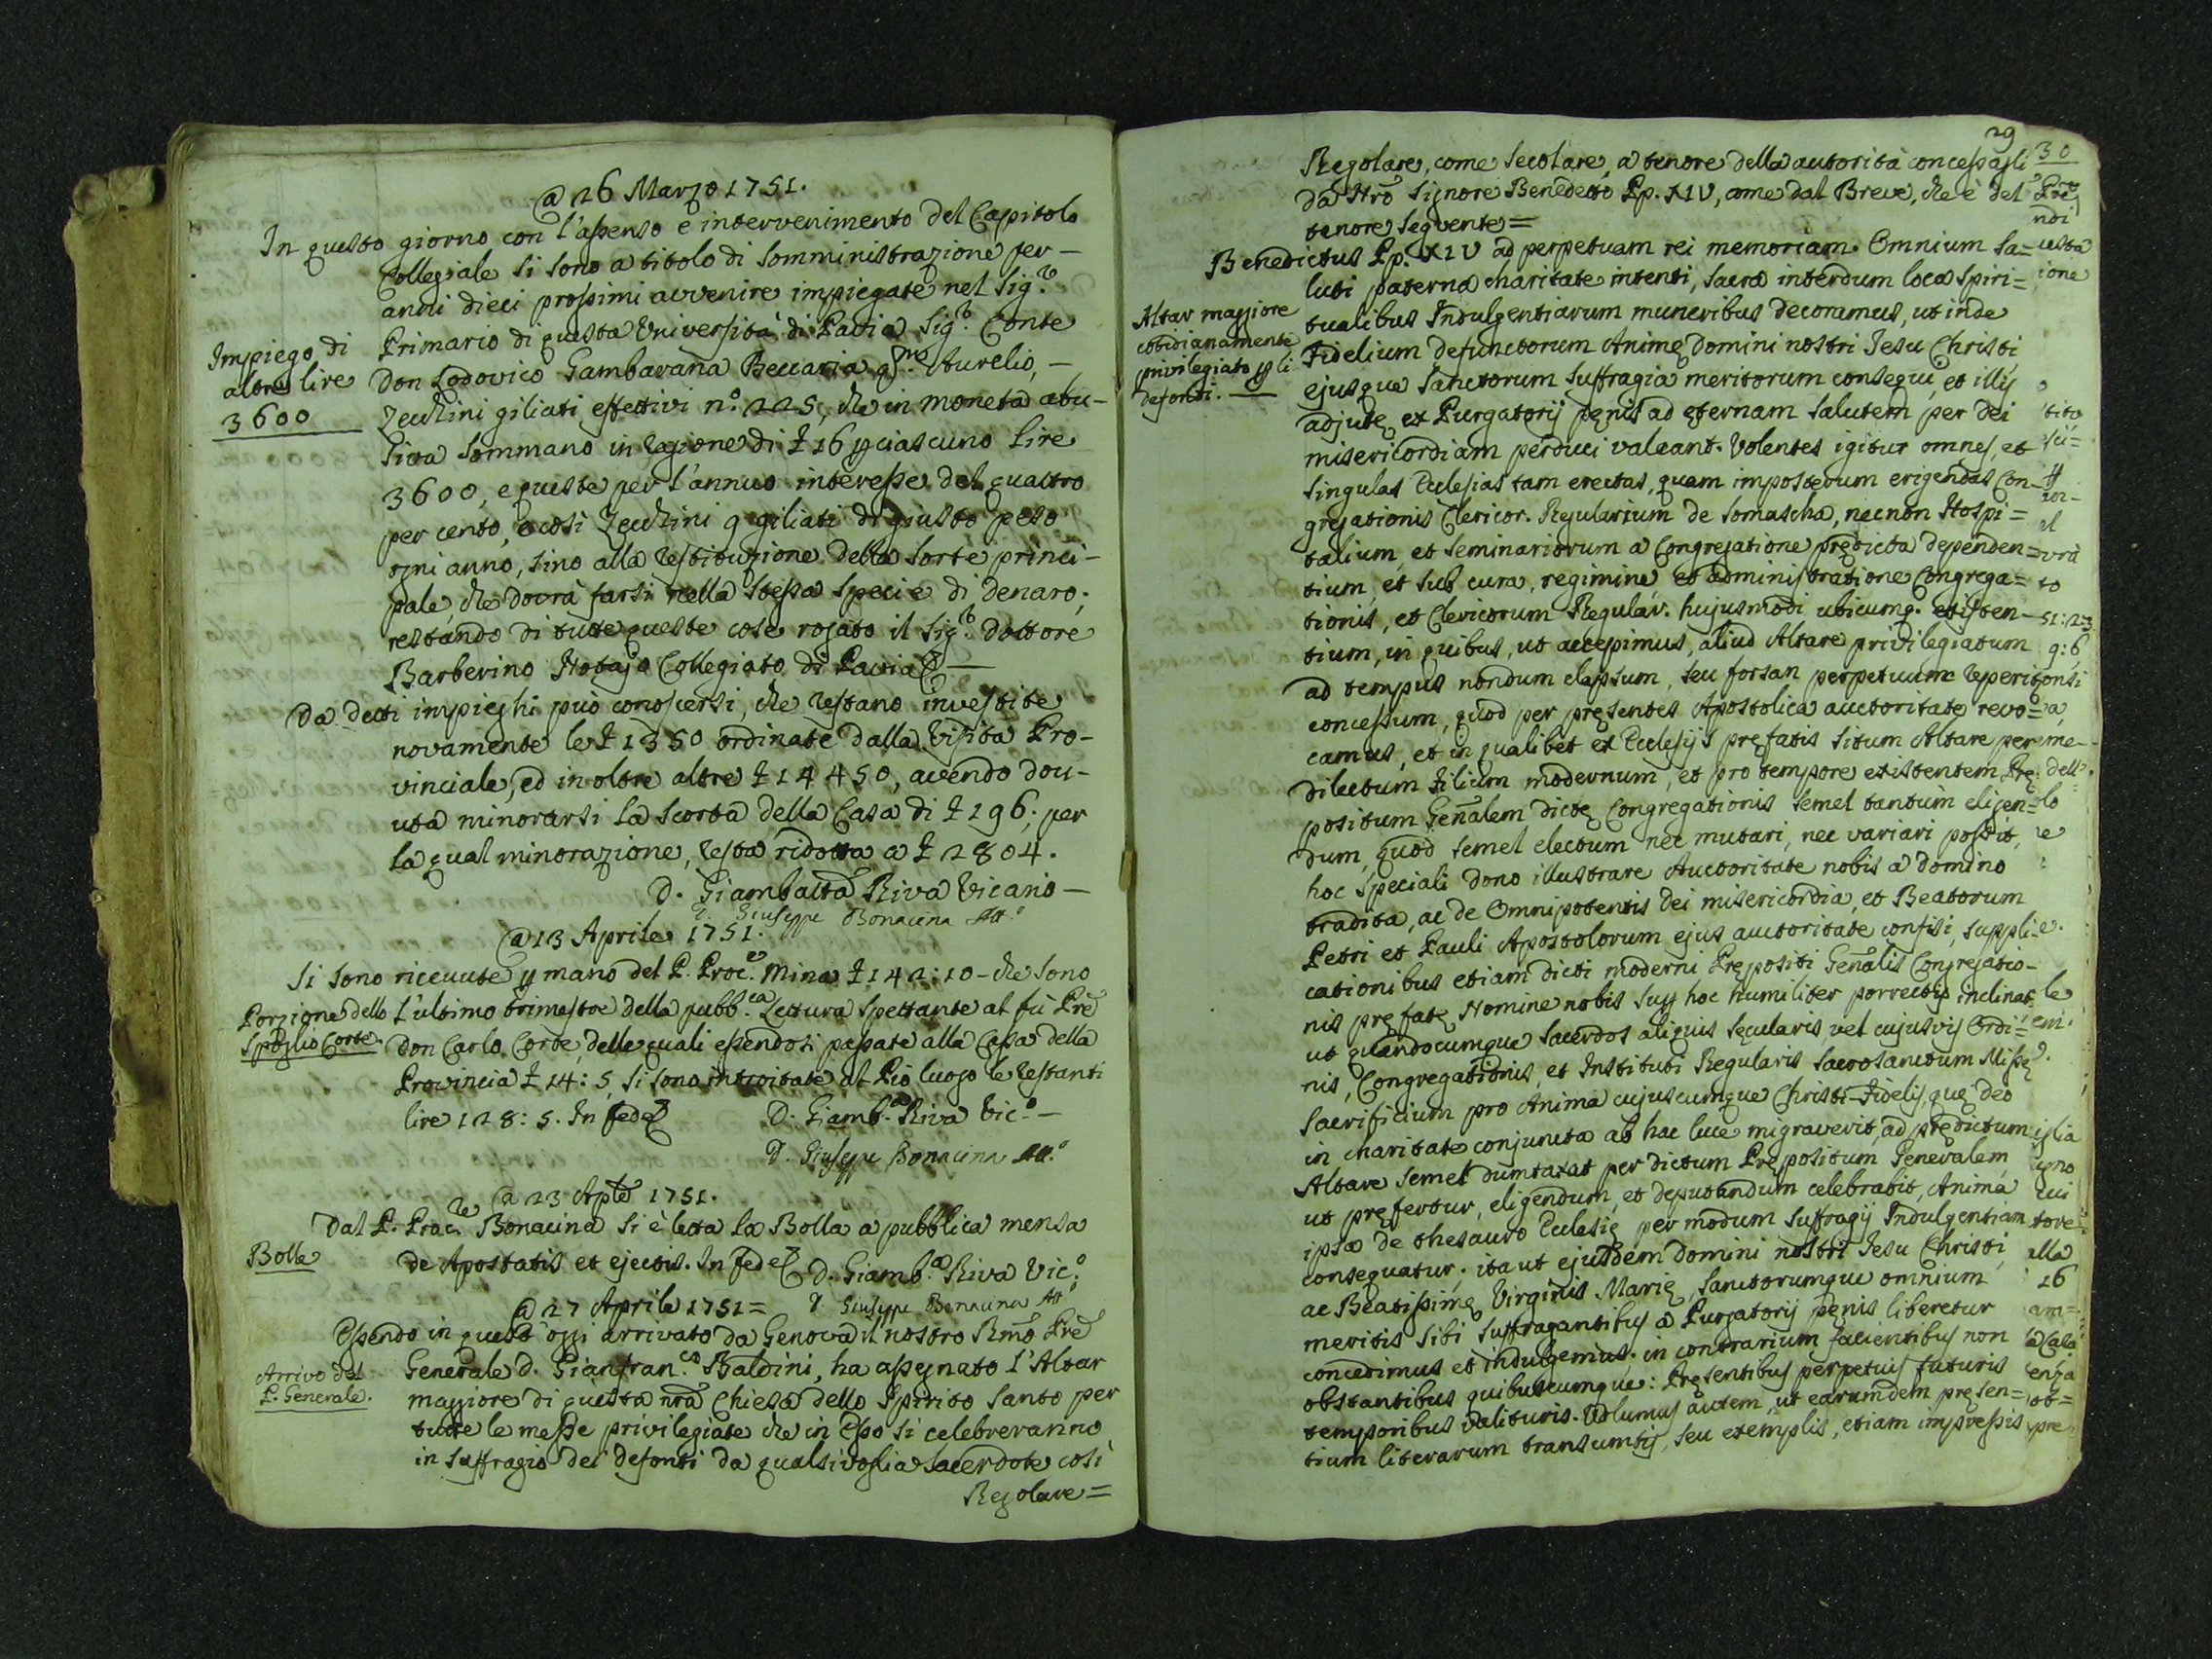 @ 26 Marzo 1751.
In questo giorno con l'assenso e intervenimento del Capitolo
Collegiale si sono a titolo di somministrazione per-
anni dieci prossimi avvenire impiegate nel Sig.r
Impiego di
altre lire
3600
Primario di questa Università di Pavia Sig.r Conte
Don Lodovico Gambarana Beccaria q.m Aurelio, -
Zecchini giliati effettivi n.o 225, che in moneta abu-
siva sommano in ragione di £ 16 p ciascuno lire
3600, e queste per l'annuo interesse del quattro
per cento, e così Zecchini 9 giliati di giusto peso
ogni anno, sino alla restituzione della sorte princi-
pale, che dovrà farsi nella stessa specie di denaro;
restando di tutte queste cose rogato il Sig.r Dottore
Barberino Notajo Collegiato di Pavia
Da detti impieghi può conoscersi, che restano investite
novamente le £ 1350 ordinate dalla Visita Pro-
vinciale, ed in oltre altre £ 14450, avendo dou-
uta minorarsi la scorta della Casa di £ 196; per
la qual minorazione, resta ridotta a £ 2804.
D. Giambatta Riva Vicario -
D. Giuseppe Bonacina Att.o
@ 13 Aprile 1751.
Si sono ricevute p mano del P. Proc.re Mina £ 142:10 - che sono
Porzione dello
Spoglio Corte.
l'ultimo trimestre della pubb.ca Lettura spettante al fù Pre
Don Carlo Corte, delle quali essendosi passate alla Cassa della
Provincia £ 14: 5, si sono introitate al Pio luogo le restanti
lire 128: 5. In fede
D. Giamb.a Riva Vic.o -
D. Giuseppe Bonacina Att.o
@ 23 Aple 1751.
Dal P. Proc.re Bonacina si è letta la Bolla a pubblica mensa
Bolle
de Apostatis et ejectis. In fede D. Giamb.a Riva Vic.o
D. Giuseppe Bonacina Att.o
@ 27 Aprile 1751 =
Essendo in quest'oggi arrivato da Genova il nostro Rmo Pre
Arrivo del
P. Generale.
Generale D. Gianfran.co Baldini, ha assegnato l'Altar
maggiore di questa nra Chiesa dello Spirito Santo per
tutte le messe privilegiate che in Esso si celebreranno
in suffragio dei defonti da qualsivoglia Sacerdote così
Regolare =
29
Regolare, come Secolare, a tenore della autorità concessagli
da Nro Signore Benedetto Pp. XIV, come dal Breve, che è del
tenore seguente =
Benedictus Pp. XIV ad perpetuam rei memoriam. Omnium sa=
luti paterna charitate intenti, sacra interdum loca Spiri=
Altar maggiore
cotidianamente
privilegiato p li
defonti.
tualibus Indulgentiarum muneribus decoramus, ut inde
Fidelium defunctorum Animę Domini nostri Jesu Christi,
ejusque Sanctorum suffragia meritorum consequi, et illis
adjutę ex Purgatorij pęnis ad ęternam salutem per Dei
misericordiam perduci valeant. Volentes igitur omnes, et
singulas Ecclesias tam erectas, quam imposterum erigendas Con-
gregationis Clericor. Regularium de Somascha, necnon Hospi=
talium, et Seminariorum a Congregatione prędicta dependen=
tium, et sub cura, regimine et administratione Congrega=
tionis, et Clericorum Regular. hujusmodi ubicumq. existen-
tium, in quibus, ut accepimus, aliud Altare privilegiatum
ad tempus nondum elapsum, seu forsan perpetuum reperit
concessum, quod per pręsentes Apostolica auctoritate revo=
camus, et in qualibet ex Ecclesijs pręfatis situm Altare per
dilectum Filium modernum, et pro tempore existentem Prę=
positum Genalem dictę Congregationis semel tantum eligen=
dum, quod semel electum nec mutari, nec variari possit,
hoc speciali dono illustrare Auctoritate nobis a Domino
tradita, ac de Omnipotentis Dei misericordia, et Beatorum
Petri et Pauli Apostolorum ejus auctoritate confisi, suppli-
cationibus etiam dicti moderni Prępositi Genalis Congregatio-
nis pręfatę Nomine nobis sup hoc humiliter porrectis inclinati
ut quandocumque Sacerdos aliquis Sęcularis, vel cujusvis Ordi=
nis, Congregationis, et Instituti Regularis Sacrosanctum Missę
Sacrificium pro Anima cujuscumque Christi-Fidelis, quę Deo
in charitate conjuncta ab hac luce migraverit, ad prędictum
Altare semel dumtaxat per dictum Prępositum Generalem,
ut pręfertur, eligendum, et deputandum celebrabit, Anima
ipsa de thesauro Ecclesię per modum suffragij Indulgentiam
consequatur; ita ut ejusdem Domini nostri Jesu Christi,
ac Beatissimę Virginis Marię, Sanctorumque omnium
meritis sibi suffragantibus a Purgatorij pęnis liberetur
concedimus et indulgemus. in contrarium facientibus non
obstantibus quibuscumque: Pręsentibus perpetuis futuris
temporibus valituris. Volumus autem, ut earumdem pręsen=
tium literarum transumtis, seu exemplis, etiam impressis
30